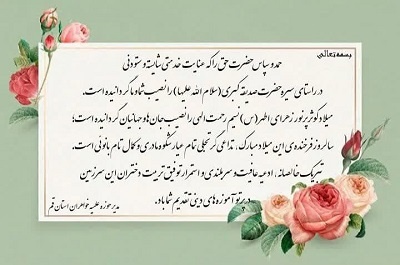 بسمه‌تعالی
حمد و سپاس حضرت حق را که عنایت خدمتی شایسته و ستودنی
در راستای سیره حضرت صدیقه کبری (سلام الله علیها) را نصیب شما و ما گردانیده است.
میلاد کوثر پر نور زهرای اطهر (س) نسیم رحمت الهی را نصیب جان‌ها و جهانیان گردانیده است؛
سالروز فرخنده‌ی این میلاد مبارک، تداعی گر تجلی تمام عیار شکوه مادری و کمال تمام بانویی است.
تبریک خالصانه، ادعیه عافیت و سربلندی و استمرار توفیق تربیت دختران این سرزمین
در پرتو آموزه‌های دینی تقدیم شما باد.
مدیر حوزه علمیه خواهران استان قم